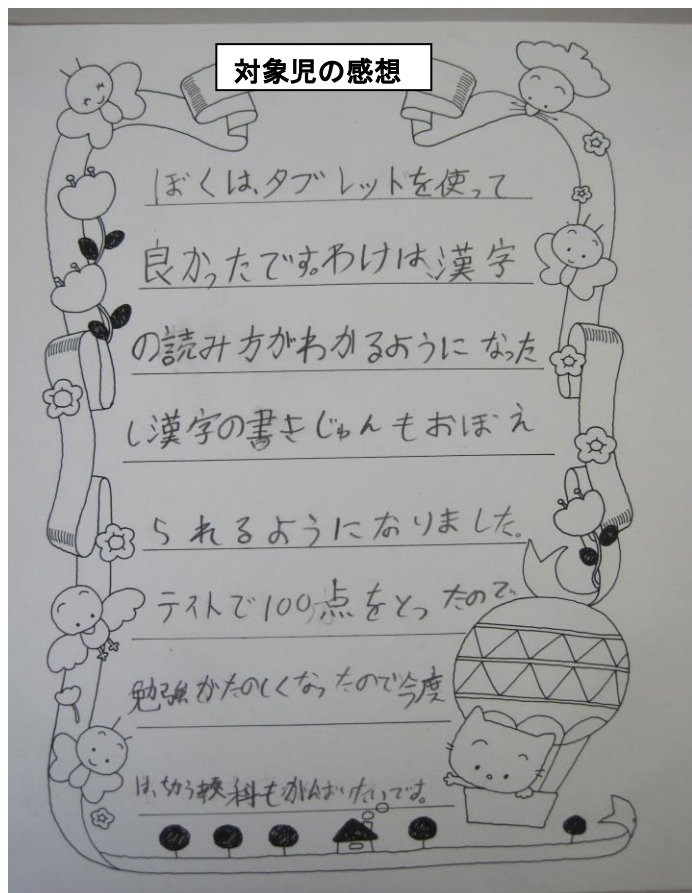 対象児の感想
ぼくは、タブレットを使って
良かったです。わけは、漢字
の読み方がわかるようになった
し漢字の書きじゅんもおぼえ
られるようになりました。
テストで100点をとったので、
勉強がたのしくなったので今度
は、ちがう教科もがんばりたいです。